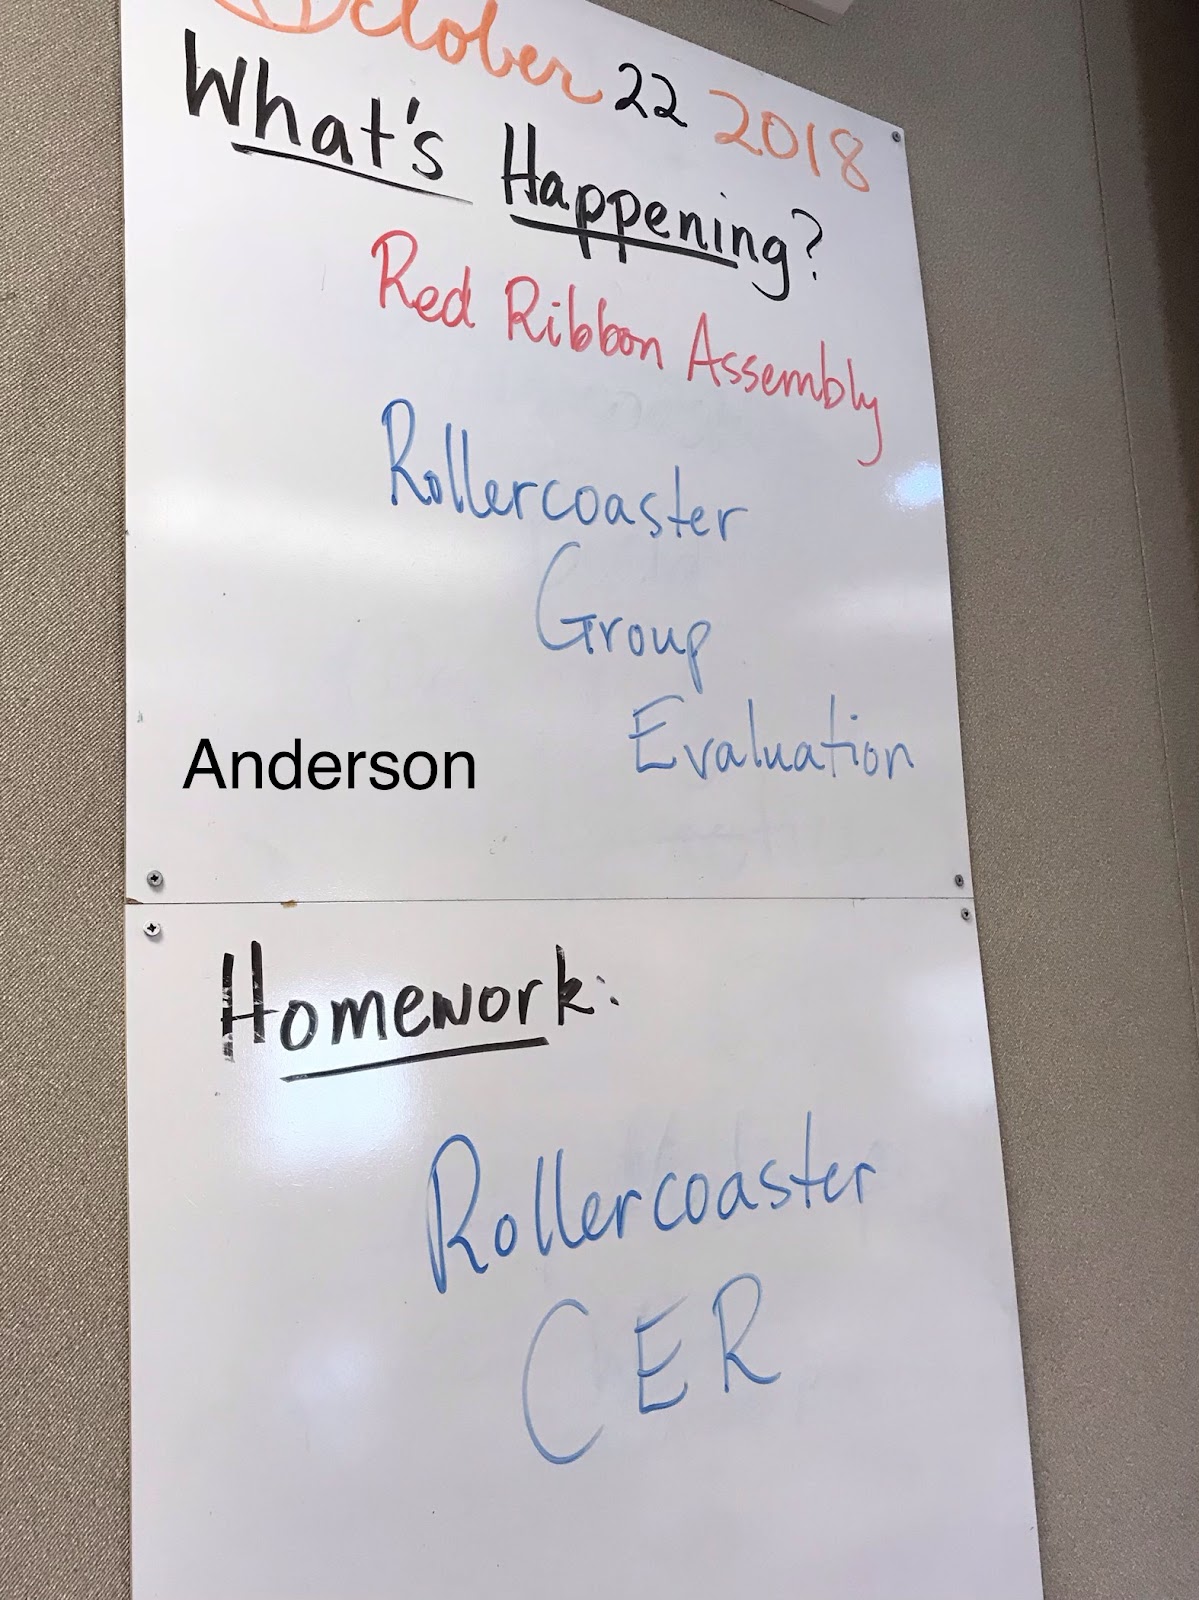 October 22 2018
What's Happening?
Red Ribbon Assembly
Rollercoaster
Group
Evaluation
Anderson
Homework:
Rollercoaster
CER